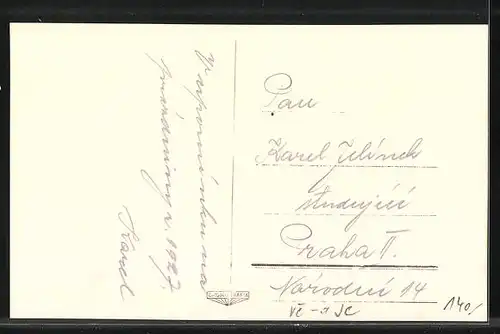 V upomínku na
prázdniny r. 1927.
Karel
Pan
Karel Jelínek
studující
Praha II.
Národní 14
vč-a jc
140/